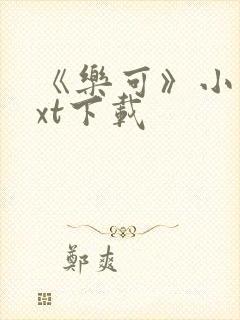 《樂可》小
xt下載
鄭爽